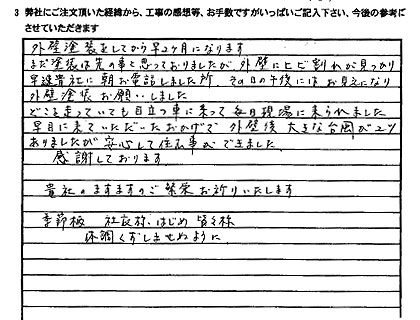 3 弊社にご注文頂いた経緯から、工事の感想等、お手数ですがいっぱいご記入下さい、今後の参考に
させていただきます
外壁塗装をしてから早2ヶ月になります
まだ塗装は先の事と思っておりましたが、外壁にヒビ割れが見つかり
早速貴社に朝お電話しました所、その日の午後にはお見えになり
外壁塗装お願いしました
どこを走っていても目立つ車に乗って毎日現場に来られました
早目に来ていただいたおかげで外壁後大きな台風が2つ
ありましたが安心して住む事ができました
感謝しております
貴社のますますのご繁栄お祈りいたします
季節柄 社長様はじめ皆々様
体調くずしませぬように